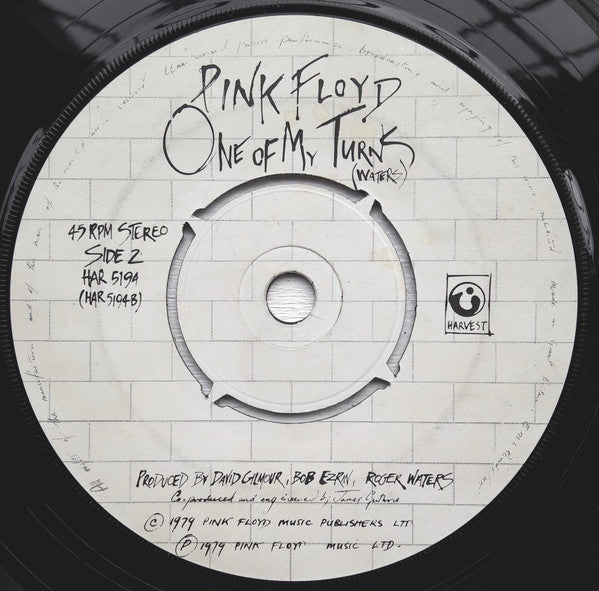 PINK FLOYD
ONE OF MY TURNS
(WATERS)
45 RPM STEREO
SIDE 2
HAR 5194
(HAR 5194B)
HARVEST
PRODUCED BY DAVID GILMOUR, BOB EZRIN, ROGER WATERS
Co-produced and engineered by James Guthrie
© 1979 PINK FLOYD MUSIC PUBLISHERS LTD
℗ 1979 PINK FLOYD MUSIC LTD.